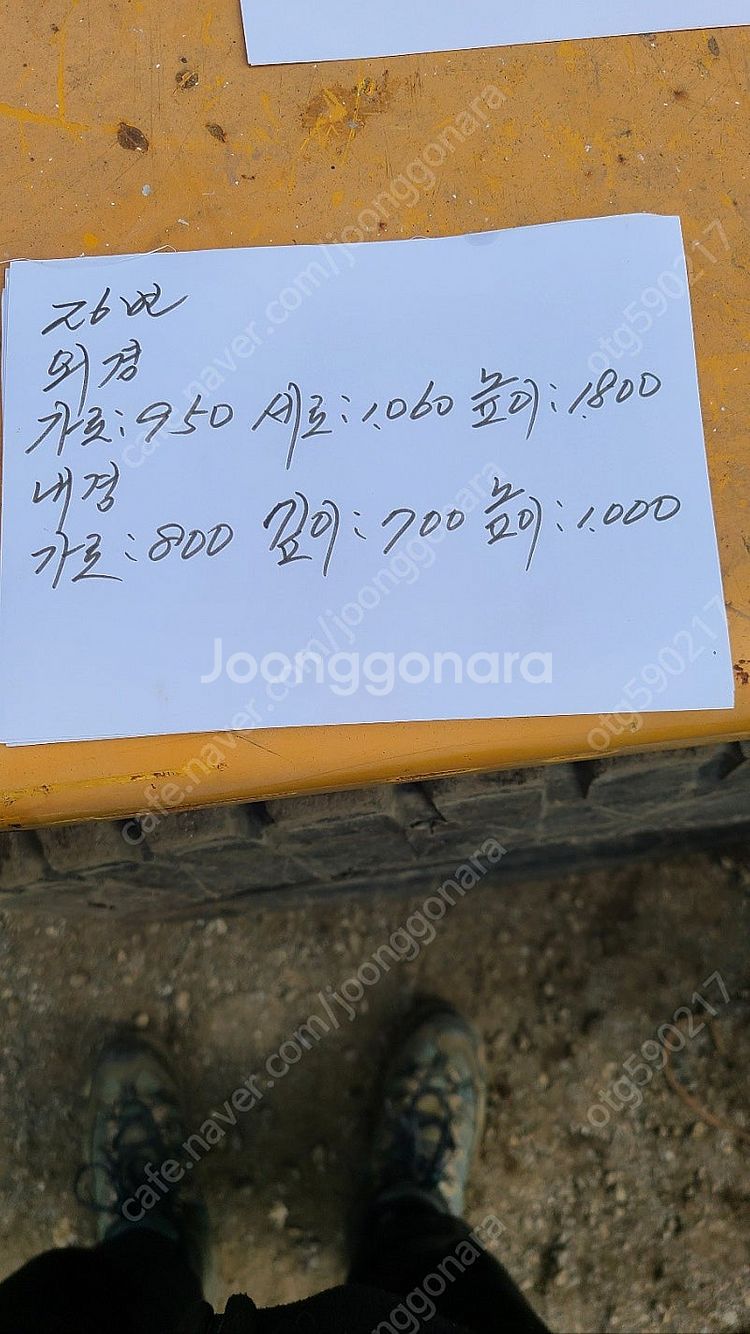 지6번
외경
가로:950 세로:1,060 높이:1,800
내경
가로:800 깊이:700 높이:1,000
Joonggonara
cafe.naver.com/joonggonara
otg590217
cafe.naver.com/joonggonara
otg590217
cafe.naver.com/joonggonara
otg590217
joonggonara